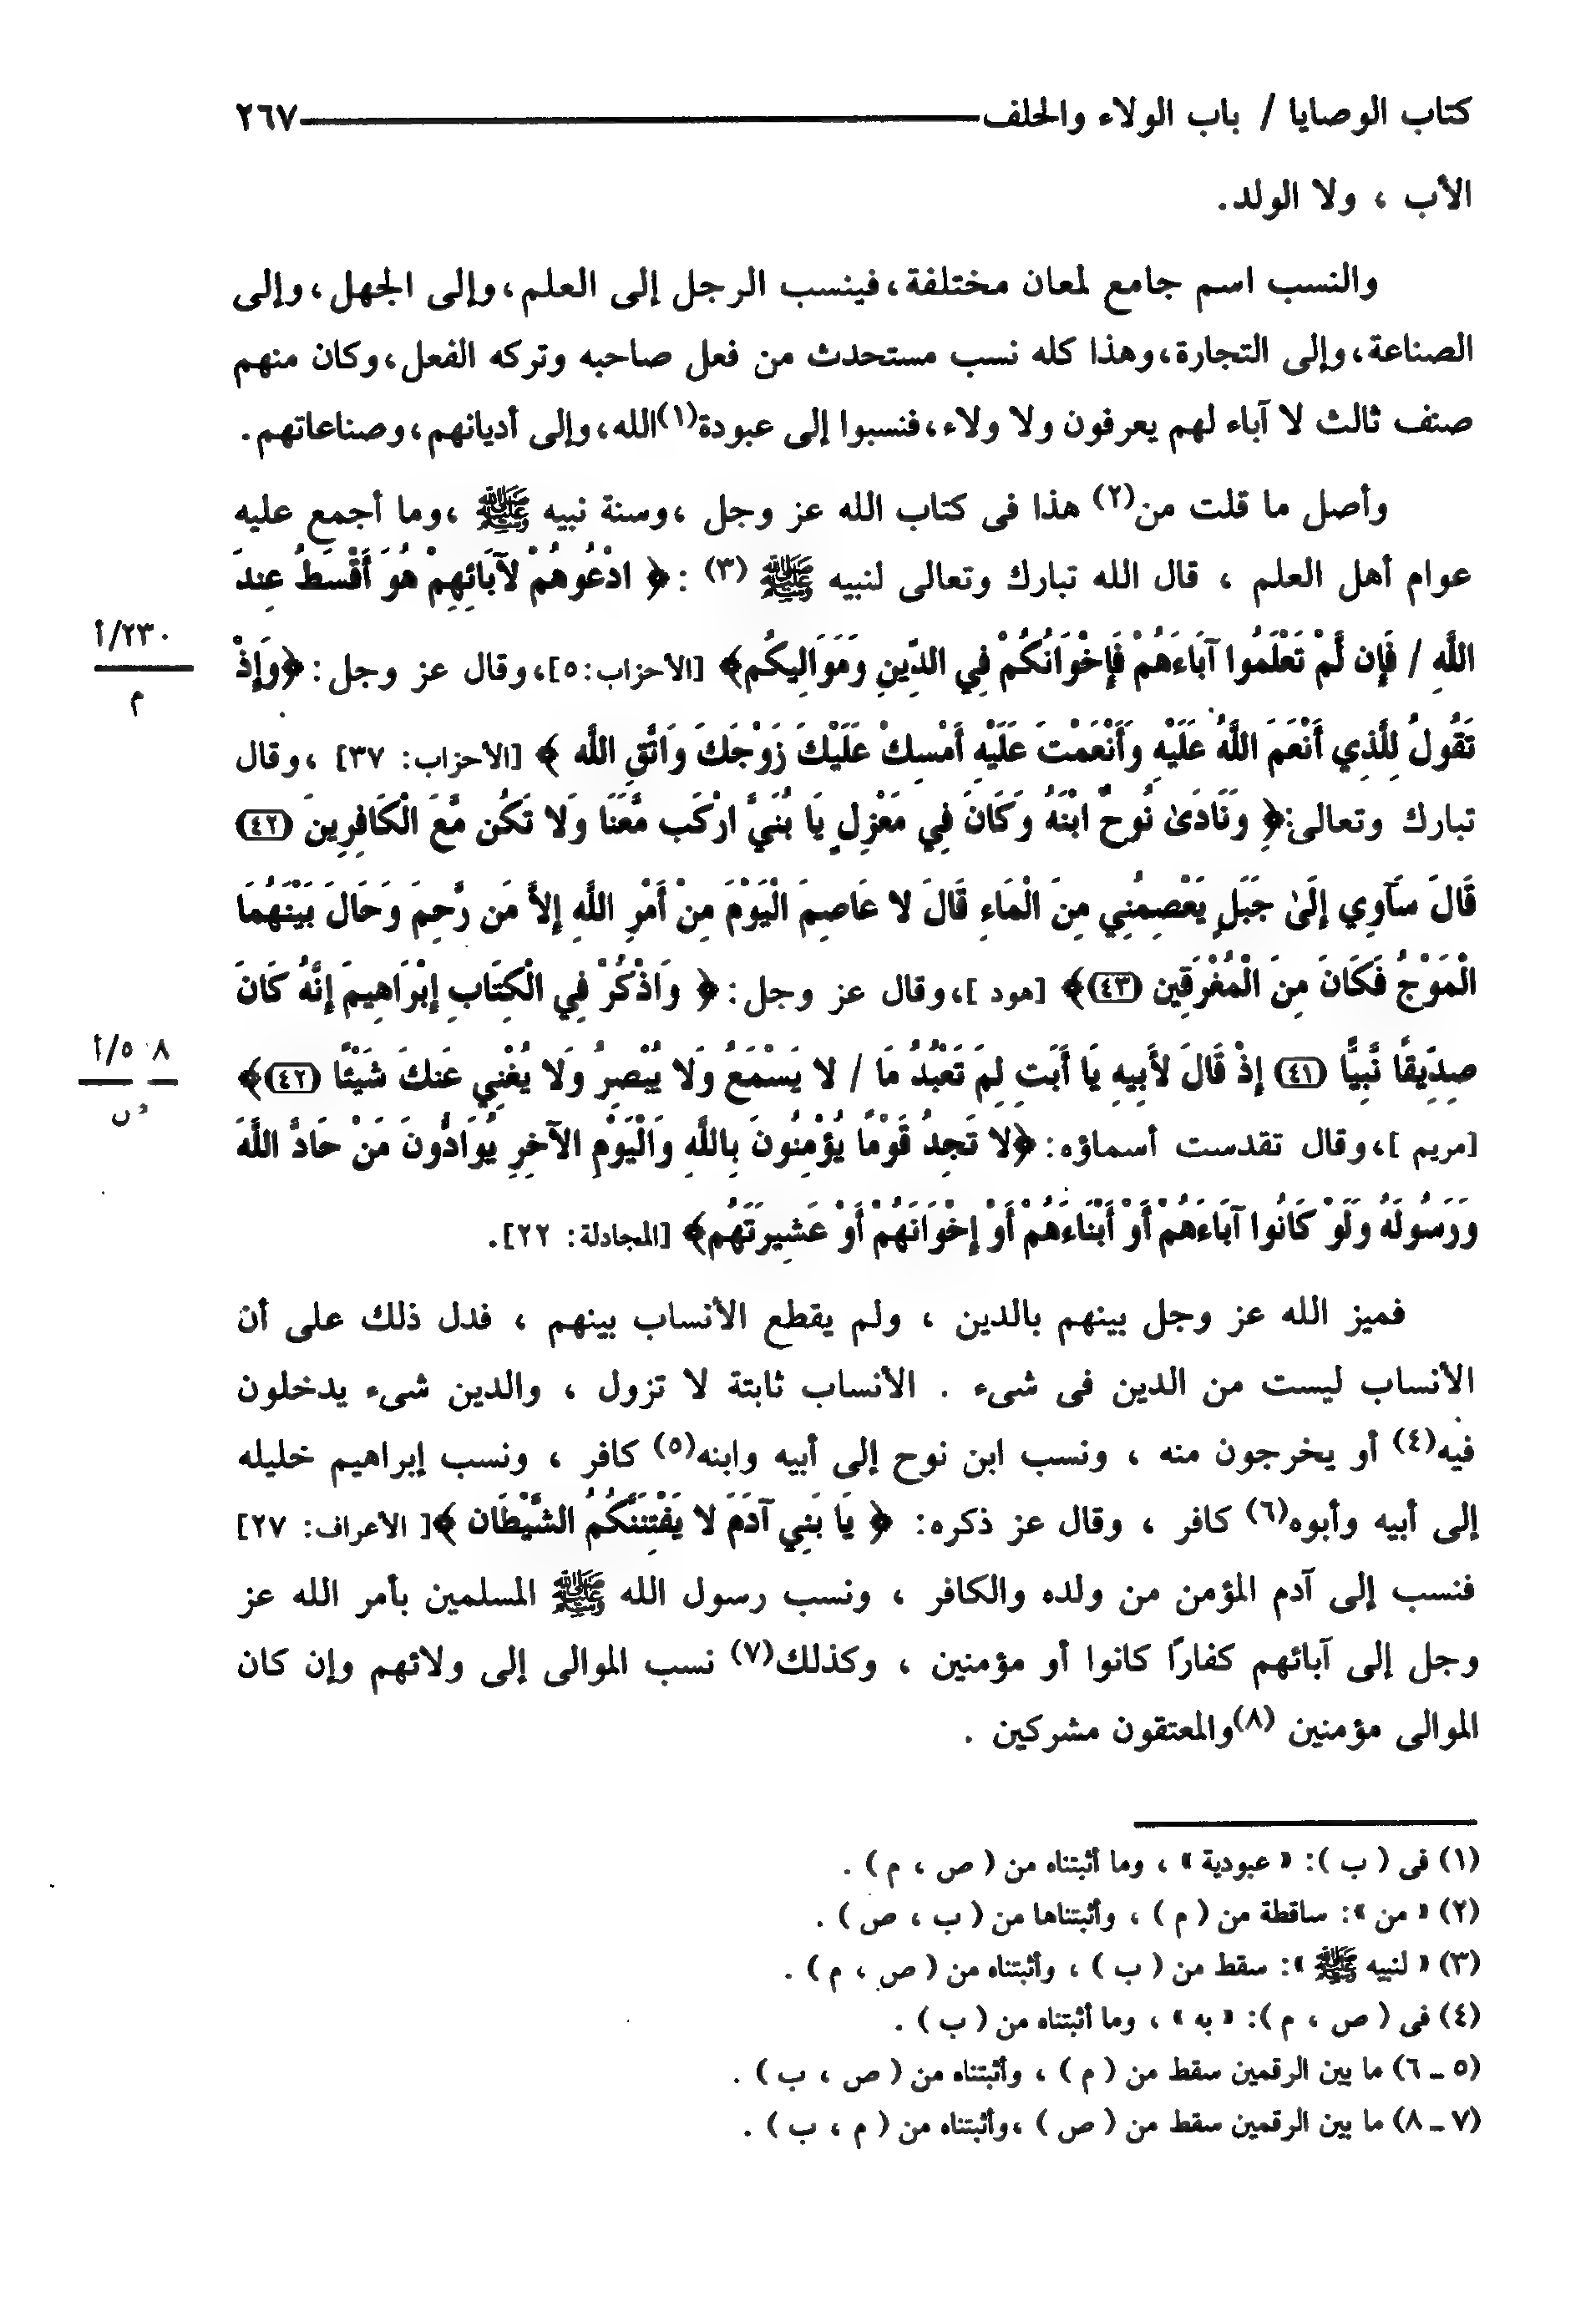 كتاب الوصايا / باب الولاء والحلف ٢٦٧
الأب ، ولا الولد.
والنسب اسم جامع لمعان مختلفة،فينسب الرجل إلى العلم،وإلى الجهل،وإلى
الصناعة،وإلى التجارة،وهذا كله نسب مستحدث من فعل صاحبه وتركه الفعل،وكان منهم
صنف ثالث لا آباء لهم يعرفون ولا ولاء،فنسبوا إلى عبودة(١)الله،وإلى أديانهم،وصناعاتهم.
وأصل ما قلت من(٢) هذا فى كتاب الله عز وجل ،وسنة نبيه ﷺ ،وما أجمع عليه
عوام أهل العلم ، قال الله تبارك وتعالى لنبيه ﷺ (٣) :﴿ ادْعُوهُمْ لآبَائِهِمْ هُوَ أَقْسَطُ عِندَ
اللَّهِ / فَإِن لَّمْ تَعْلَمُوا آبَاءَهُمْ فَإِخْوَانُكُمْ فِي الدِّينِ وَمَوَالِيكُم﴾ [الأحزاب:٥]،وقال عز وجل:﴿وَإِذْ
٢٣٠/أ
م
تَقُولُ لِلَّذِي أَنْعَمَ اللَّهُ عَلَيْهِ وَأَنْعَمْتَ عَلَيْهِ أَمْسِكْ عَلَيْكَ زَوْجَكَ وَاتَّقِ اللَّه ﴾ [الأحزاب: ٣٧] ،وقال
تبارك وتعالى:﴿ وَنَادَىٰ نُوحٌ ابْنَهُ وَكَانَ فِي مَعْزِلٍ يَا بُنَيَّ ارْكَب مَّعَنَا وَلا تَكُن مَّعَ الْكَافِرِينَ (٤٢)
قَالَ سَآوِي إِلَىٰ جَبَلٍ يَعْصِمُنِي مِنَ الْمَاءِ قَالَ لا عَاصِمَ الْيَوْمَ مِنْ أَمْرِ اللَّهِ إِلاَّ مَن رَّحِمَ وَحَالَ بَيْنَهُمَا
الْمَوْجُ فَكَانَ مِنَ الْمُغْرَقِين (٤٣)﴾ [هود ]،وقال عز وجل:﴿ وَاذْكُرْ فِي الْكِتَابِ إِبْرَاهِيمَ إِنَّهُ كَانَ
صِدِّيقًا نَّبِيًّا (٤١) إِذْ قَالَ لأَبِيهِ يَا أَبَتِ لِمَ تَعْبُدُ مَا / لا يَسْمَعُ وَلا يُبْصِرُ وَلا يُغْنِي عَنكَ شَيْئًا (٤٢)﴾
٥٠٨/أ
ص
[مريم ]،وقال تقدست أسماؤه:﴿لا تَجِدُ قَوْمًا يُؤْمِنُونَ بِاللَّهِ وَالْيَوْمِ الآخِرِ يُوَادُّونَ مَنْ حَادَّ اللَّهَ
وَرَسُولَهُ وَلَوْ كَانُوا آبَاءَهُمْ أَوْ أَبْنَاءَهُمْ أَوْ إِخْوَانَهُمْ أَوْ عَشِيرَتَهُم﴾ [المجادلة: ٢٢].
فميز الله عز وجل بينهم بالدين ، ولم يقطع الأنساب بينهم ، فدل ذلك على أن
الأنساب ليست من الدين فى شىء . الأنساب ثابتة لا تزول ، والدين شىء يدخلون
فيه(٤) أو يخرجون منه ، ونسب ابن نوح إلى أبيه وابنه(٥) كافر ، ونسب إبراهيم خليله
إلى أبيه وأبوه(٦) كافر ، وقال عز ذكره: ﴿ يَا بَنِي آدَمَ لا يَفْتِنَنَّكُمُ الشَّيْطَان ﴾[ الأعراف: ٢٧]
فنسب إلى آدم المؤمن من ولده والكافر ، ونسب رسول الله ﷺ المسلمين بأمر الله عز
وجل إلى آبائهم كفارًا كانوا أو مؤمنين ، وكذلك(٧) نسب الموالى إلى ولائهم وإن كان
الموالى مؤمنين (٨)والمعتقون مشركين .
(١) فى ( ب ): « عبودية » ، وما أثبتناه من ( ص ، م ) .
(٢) « من »: ساقطة من ( م ) ، وأثبتناها من ( ب ، ص ) .
(٣) « لنبيه ﷺ »: سقط من ( ب ) ، وأثبتناه من ( ص ، م ) .
(٤) فى ( ص ، م ): « به » ، وما أثبتناه من ( ب ) .
(٥ ـ ٦) ما بين الرقمين سقط من ( م ) ، وأثبتناه من ( ص ، ب ) .
(٧ ـ ٨) ما بين الرقمين سقط من ( ص ) ،وأثبتناه من ( م ، ب ) .